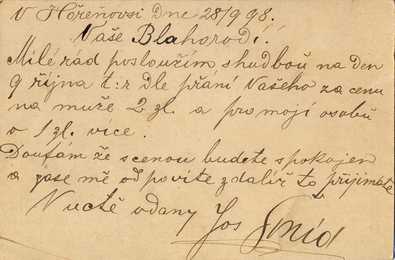 v Hořeňovsi Dne 28/9 98.
Vaše Blahorodí!
Milé rád posloužím shudbou na den
9 října t:r dle přání Vašeho za cenu
na muže 2 zl. a pro mojí osobu
o 1 zl. více.
Doufám že scenou budete spokojen
a zase mě odpovíte zdalíž to přijímáte
Vuctě odaný Jos Šmíd